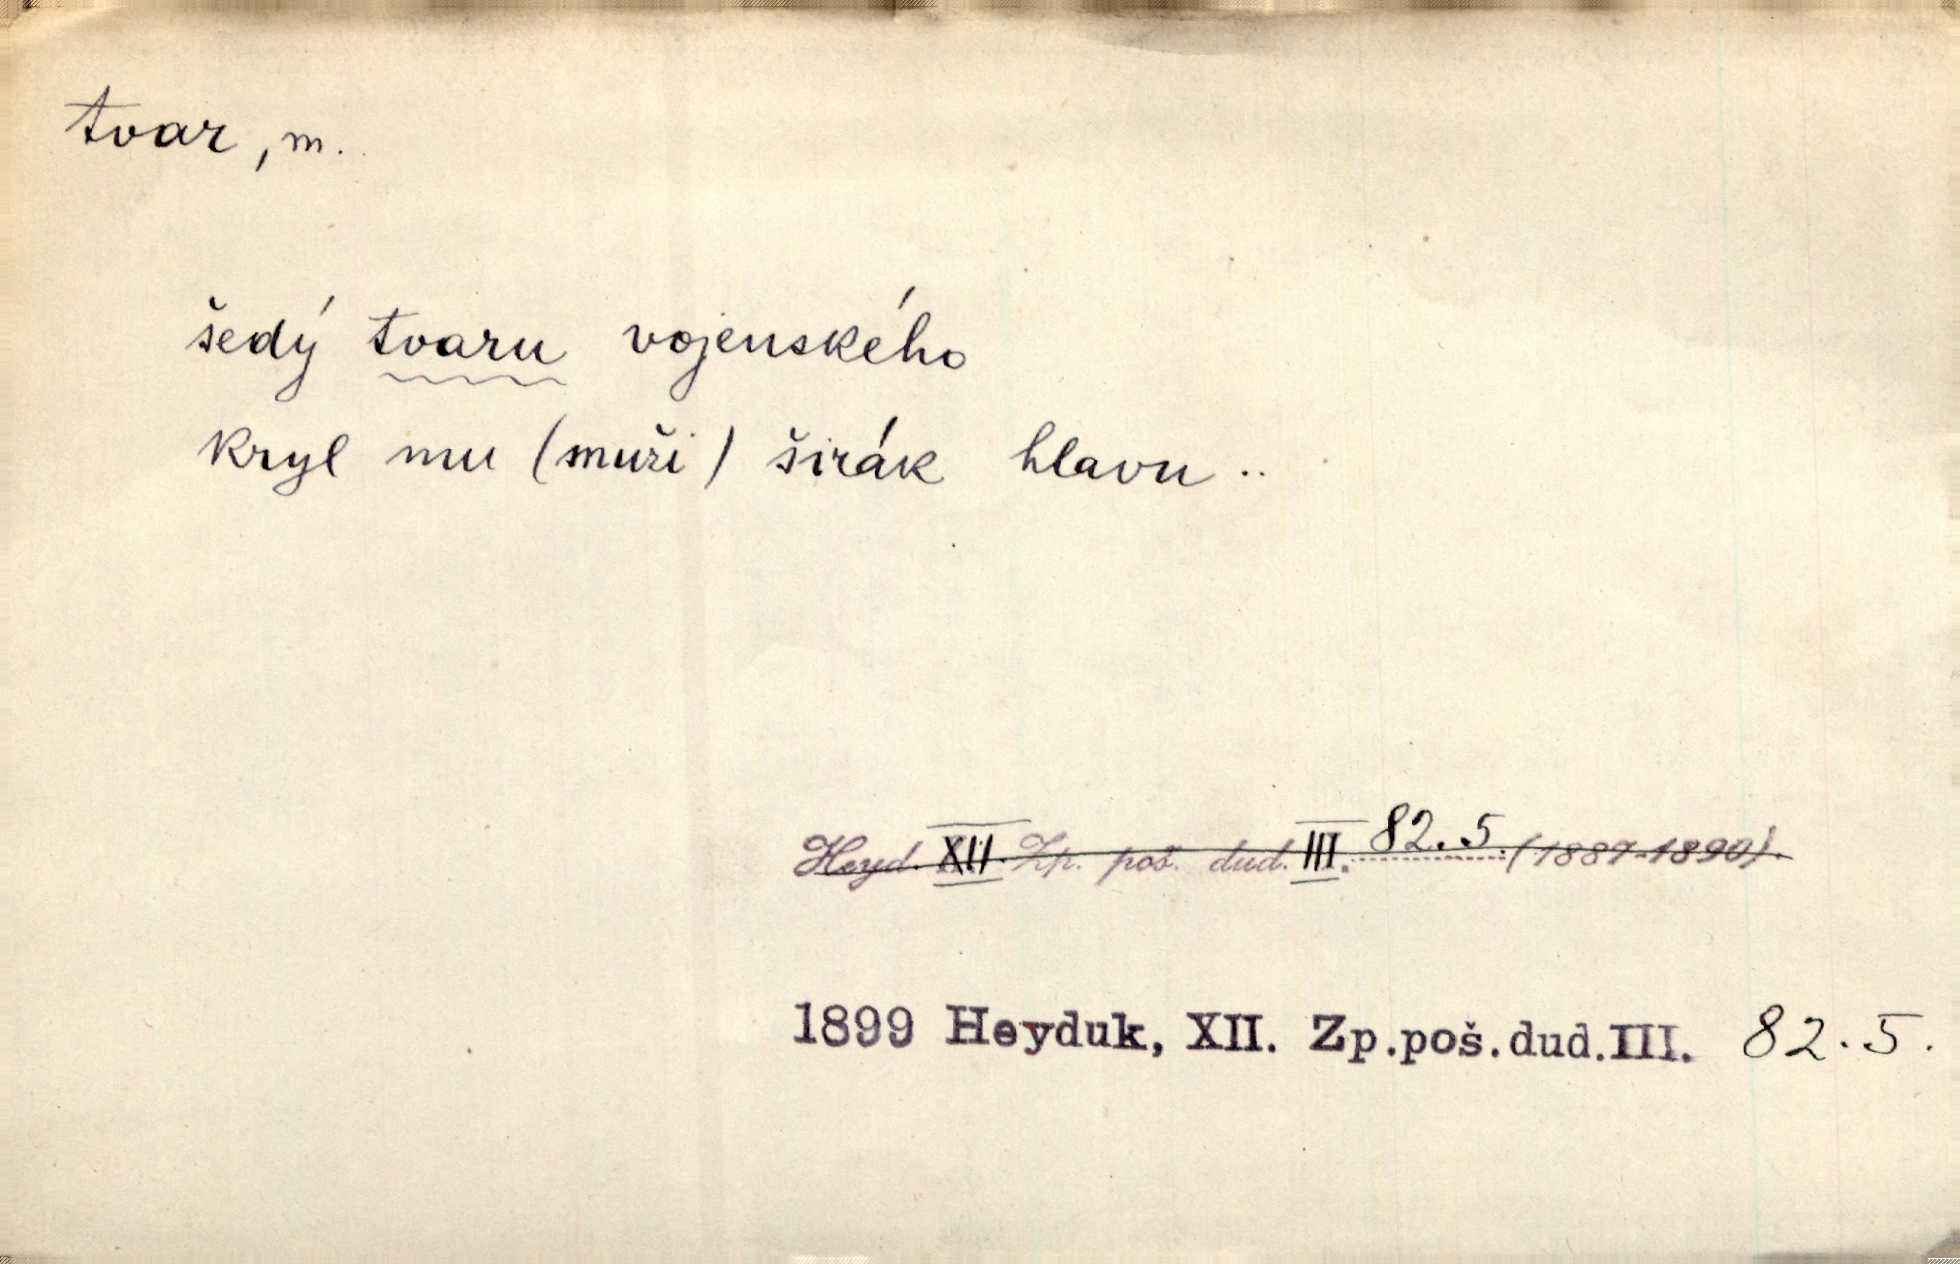 tvar, m.
šedý tvaru vojenského
kryl mu (muži) širák hlavu ..
Heyd. XII. Zp. poš. dud. III. 82.5. (1887-1890).
1899 Heyduk, XII. Zp.poš.dud.III. 82.5.